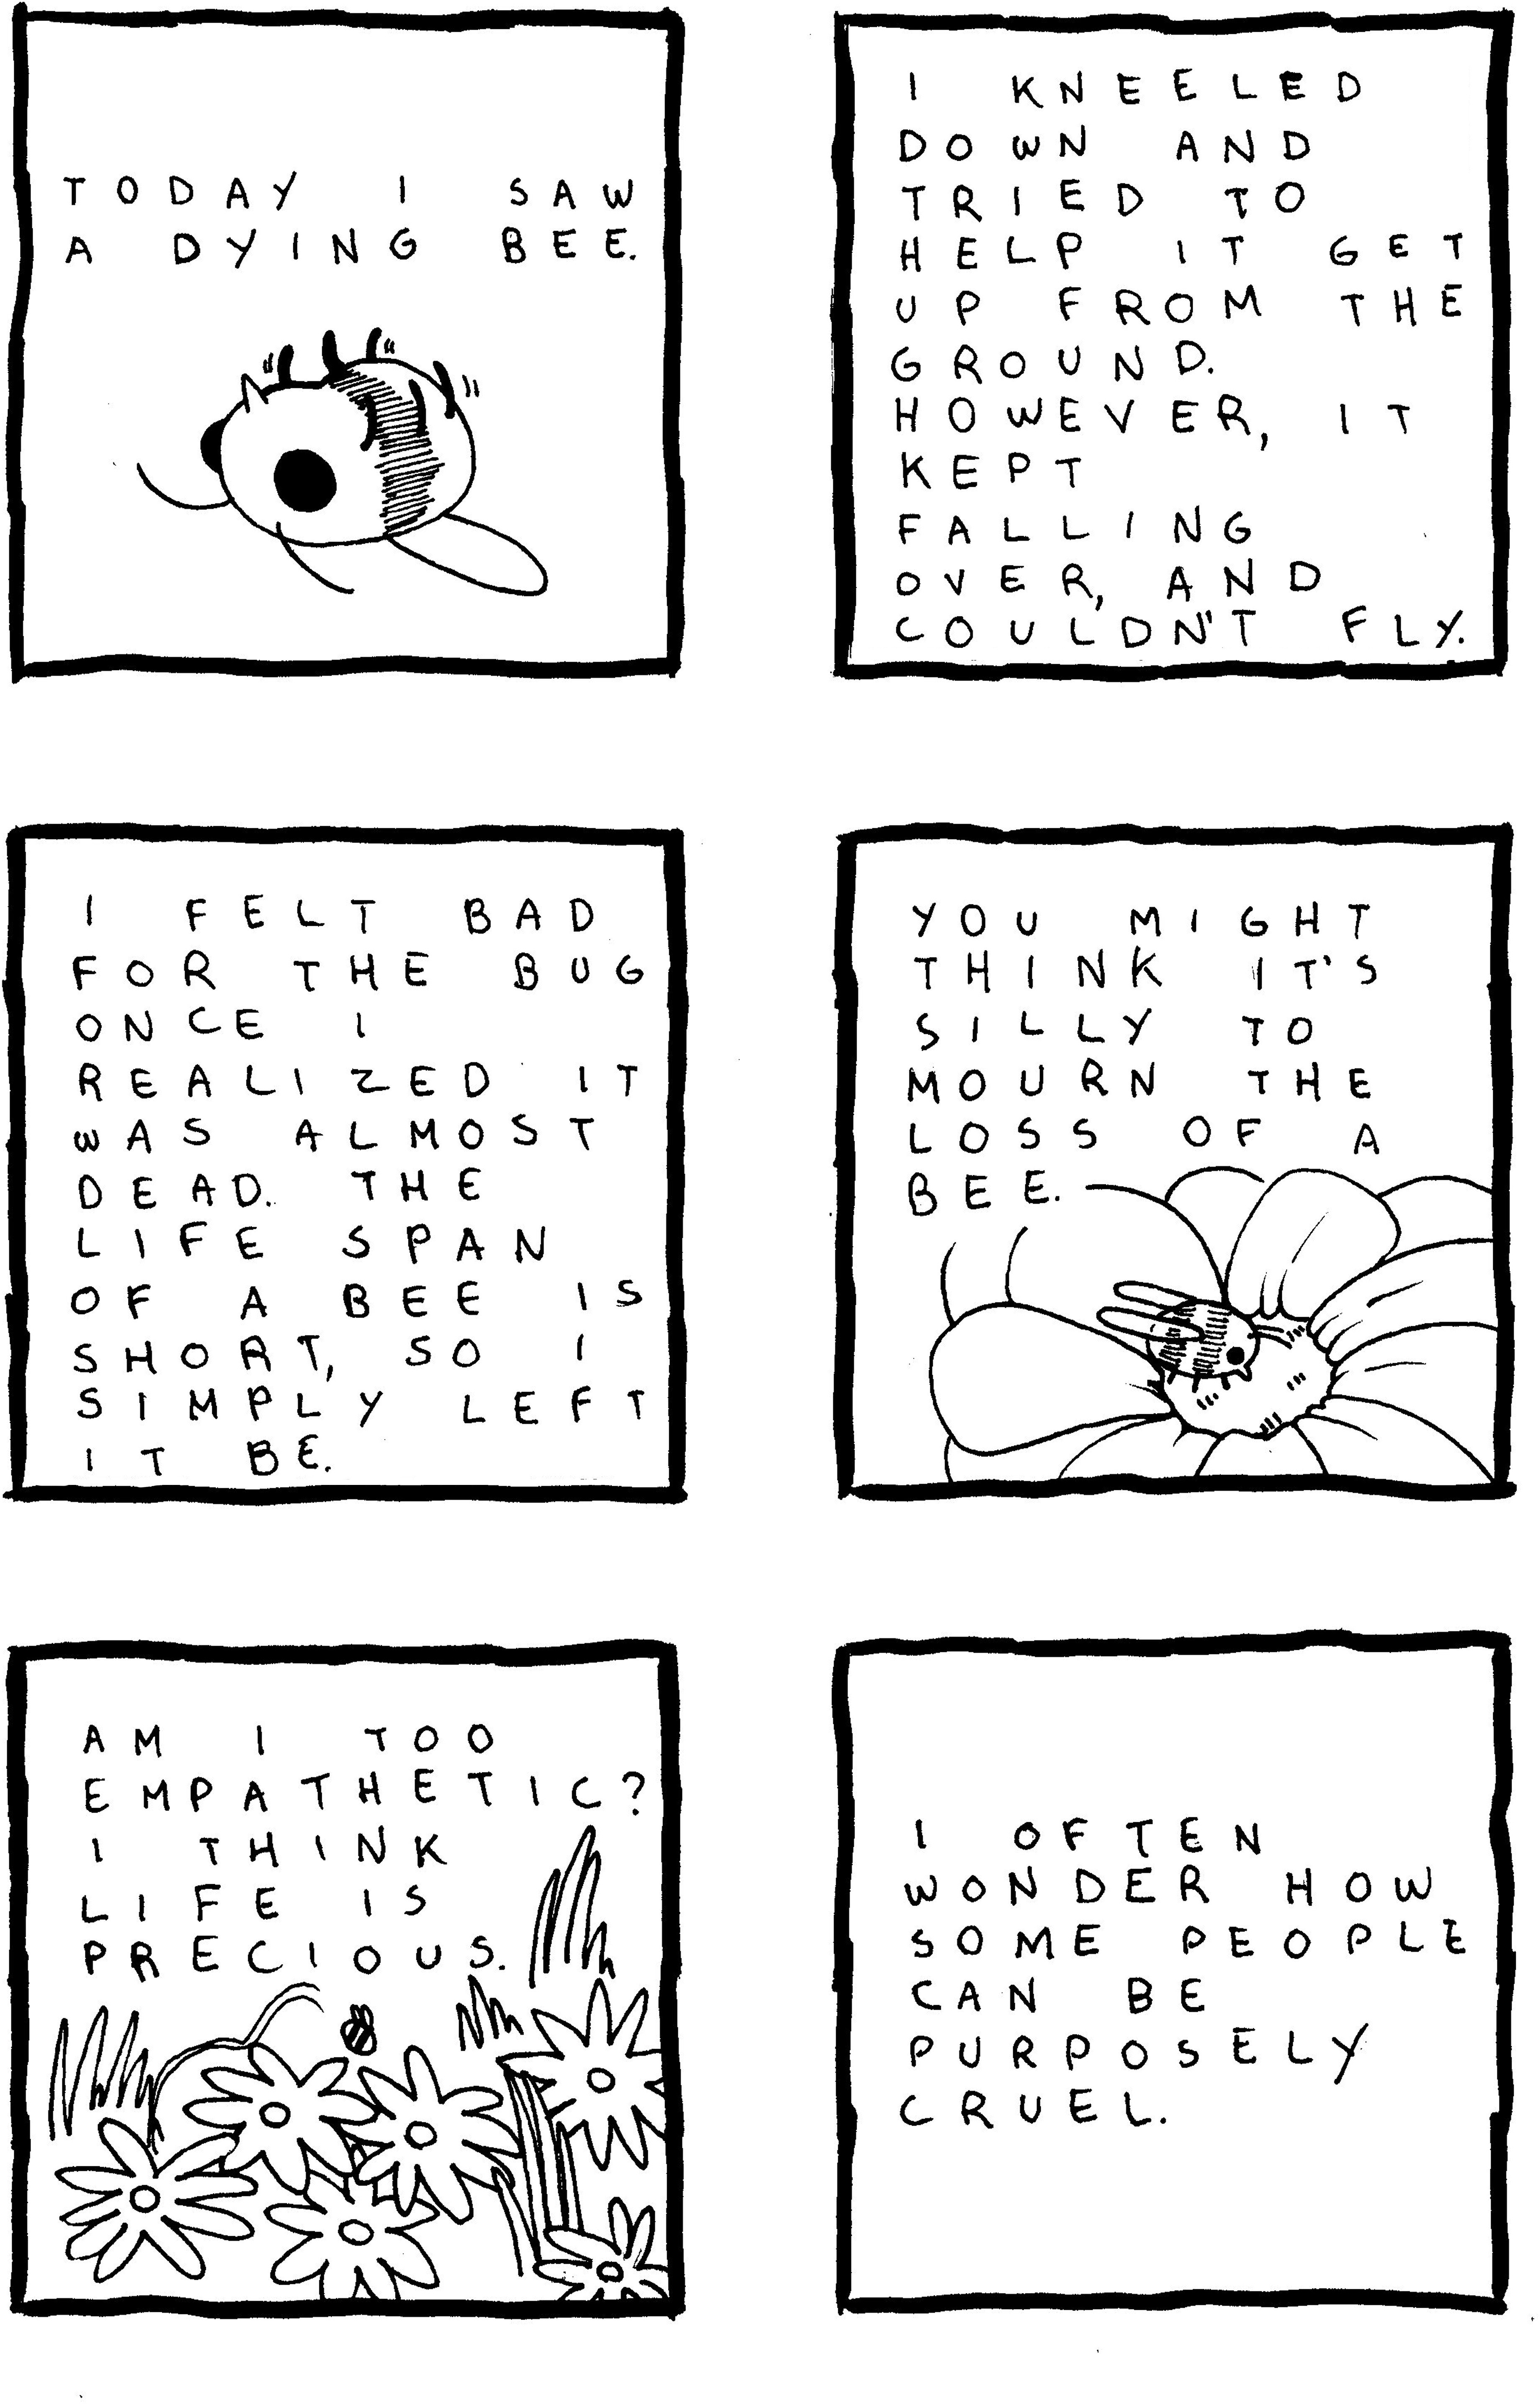 TODAY I SAW
A DYING BEE.
I KNEELED
DOWN AND
TRIED TO
HELP IT GET
UP FROM THE
GROUND.
HOWEVER, IT
KEPT
FALLING
OVER, AND
COULDN'T FLY.
I FELT BAD
FOR THE BUG
ONCE I
REALIZED IT
WAS ALMOST
DEAD. THE
LIFE SPAN
OF A BEE IS
SHORT, SO I
SIMPLY LEFT
IT BE.
YOU MIGHT
THINK IT'S
SILLY TO
MOURN THE
LOSS OF A
BEE.
AM I TOO
EMPATHETIC?
I THINK
LIFE IS
PRECIOUS.
I OFTEN
WONDER HOW
SOME PEOPLE
CAN BE
PURPOSELY
CRUEL.